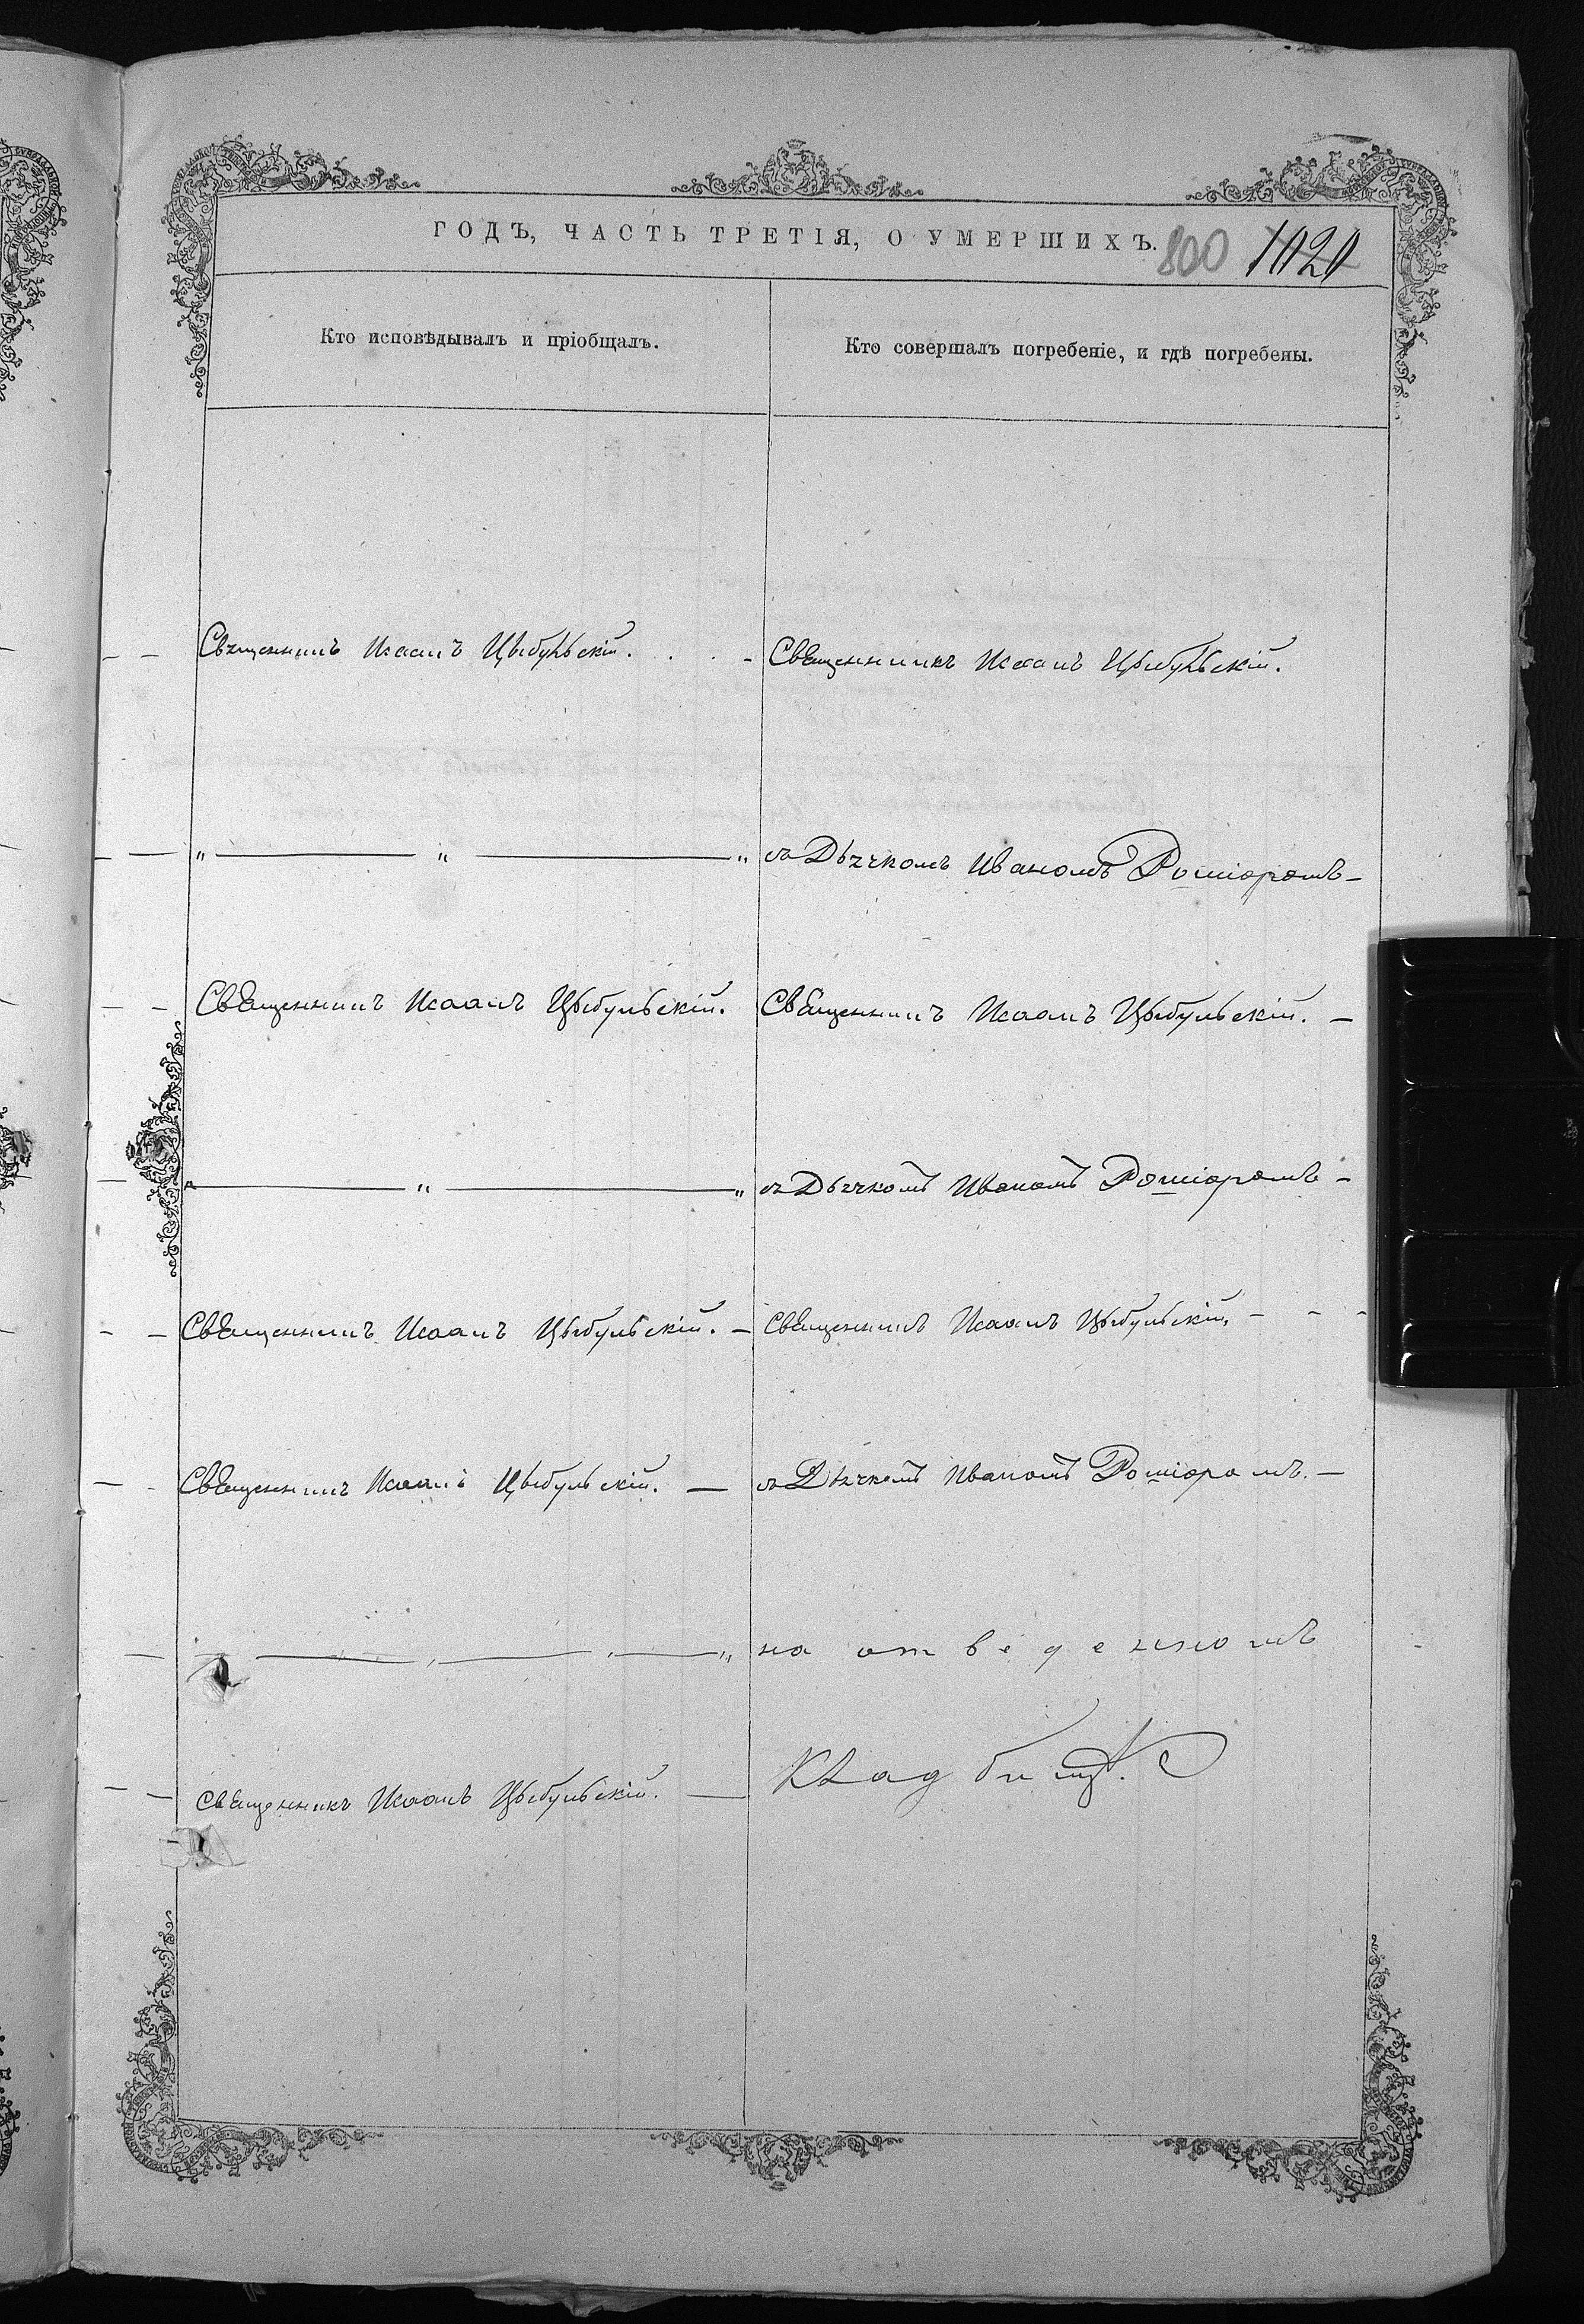 ГОДЪ, ЧАСТЬ ТРЕТІЯ, О УМЕРШИХЪ.
800 1020
Кто исповѣдывалъ и пріобщалъ.
Кто совершалъ погребеніе, и гдѣ погребены.
Священникъ Иоаннъ Цыбульскій. . . . - Священникъ Иоаннъ Цыбульскій.
" — " — " съ Дьячкомъ Иваномъ Рошіоромъ -
Священникъ Иоаннъ Цыбульскій. Священникъ Иоаннъ Цыбульскій. —
" — " — " съ Дьячкомъ Иваномъ Рошіоромъ -
Священникъ Иоаннъ Цыбульскій. — Священникъ Иоаннъ Цыбульскій. - - -
Священникъ Иоаннъ Цыбульскій. — съ Дьячкомъ Иваномъ Рошіоромъ. —
— " — " — " на отведенномъ
Священникъ Иоаннъ Цыбульскій. —
кладбищѣ.